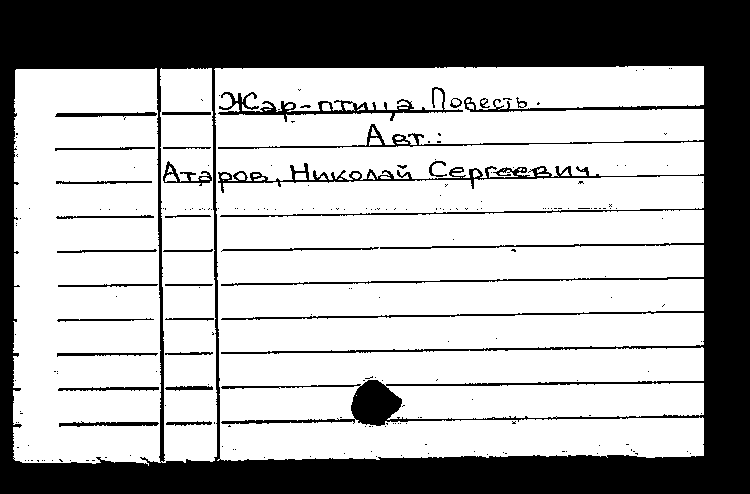 Жар-птица. Повесть.
Авт.:
Атаров, Николай Сергеевич.